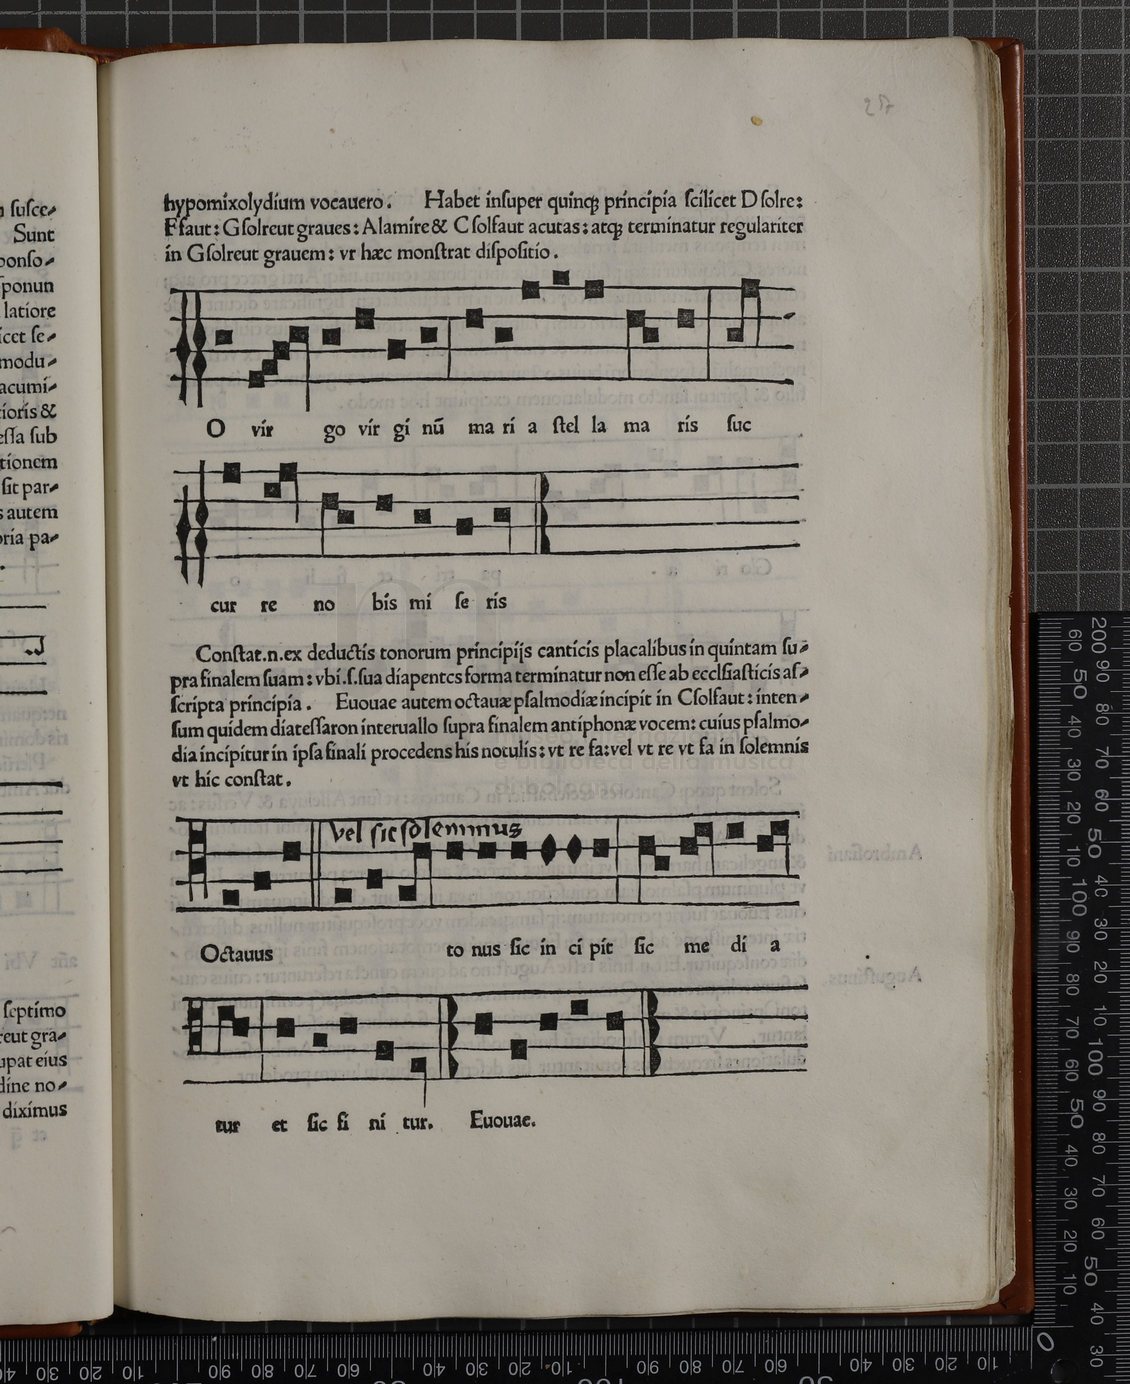 27
hypomixolydium vocauero. Habet insuper quinqꝫ principia scilicet D solre:
Ffaut: Gsolreut graues: Alamire & C solfaut acutas: atqꝫ terminatur regulariter
in Gsolreut grauem: vt hæc monstrat dispositio.
O vir go vir gi nũ ma ri a stel la ma ris suc
cur re no bis mi se ris
Constat.n.ex deductis tonorum principijs canticis placalibus in quintam su⸗
pra finalem suam: vbi .s. sua diapentes forma terminatur non esse ab ecclsiasticis as⸗
scripta principia. Euouae autem octauæ psalmodiæ incipit in Csolfaut: inten⸗
sum quidem diatessaron interuallo supra finalem antiphonæ vocem: cuius psalmo⸗
dia incipitur in ipsa finali procedens his notulis: vt re fa: vel vt re vt fa in solemnis
vt hic constat.
vel sic solemnus
Octauus to nus sic in ci pit sic me di a
tur et sic fi ni tur. Euouae.
n susce⸗
Sunt
ponso⸗
ponun
latiore
icet se⸗
modu⸗
acumi⸗
ioris &
essa sub
tionem
sit par⸗
s autem
oria pa⸗
septimo
reut gra⸗
upat eius
dine no⸗
diximus